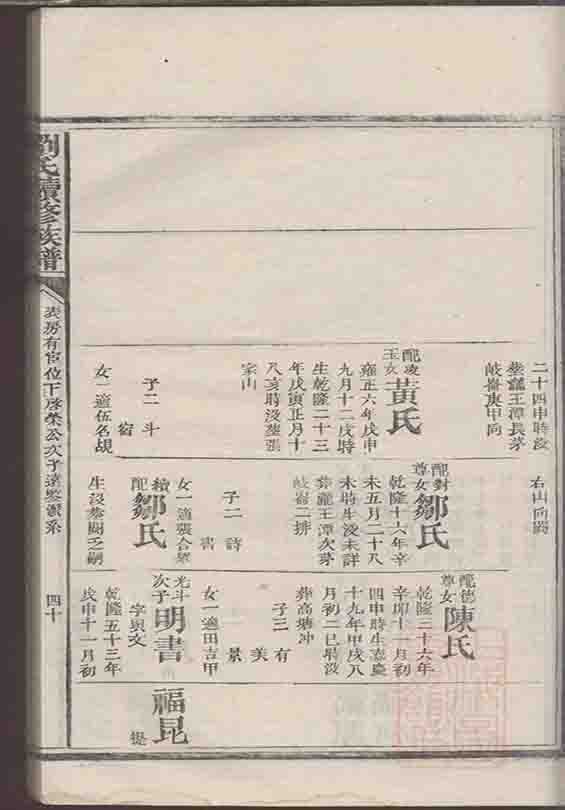 劉氏續修族譜
長房有官位下啓榮公次子遠鑒賢系
四十
二十四申時沒
塟龍王潭長茅
岐嘴庚甲向
配凌玉女
黃氏
雍正六年戊申
九月十二戌時
生乾隆二十三
年戊寅正月十
八亥時沒塟張
家山
子二 斗
宿
女一適伍名覘
右山向闕
配對尊女
鄒氏
乾隆十六年辛
未五月二十八
未時生沒未詳
塟龍王潭次茅
岐嘴二排
子二 詩
書
女一適張合翠
續配
鄒氏
生沒塟闕乏嗣
配德尊女
陳氏
乾隆三十六年
辛卯十一月初
四申時生嘉慶
十九年甲戌八
月初二巳時沒
葬高塘冲
子三 有
美
景
女一適田吉甲
光斗次子
明書
字煥文
乾隆五十三年
戊申十一月初
福昆
提